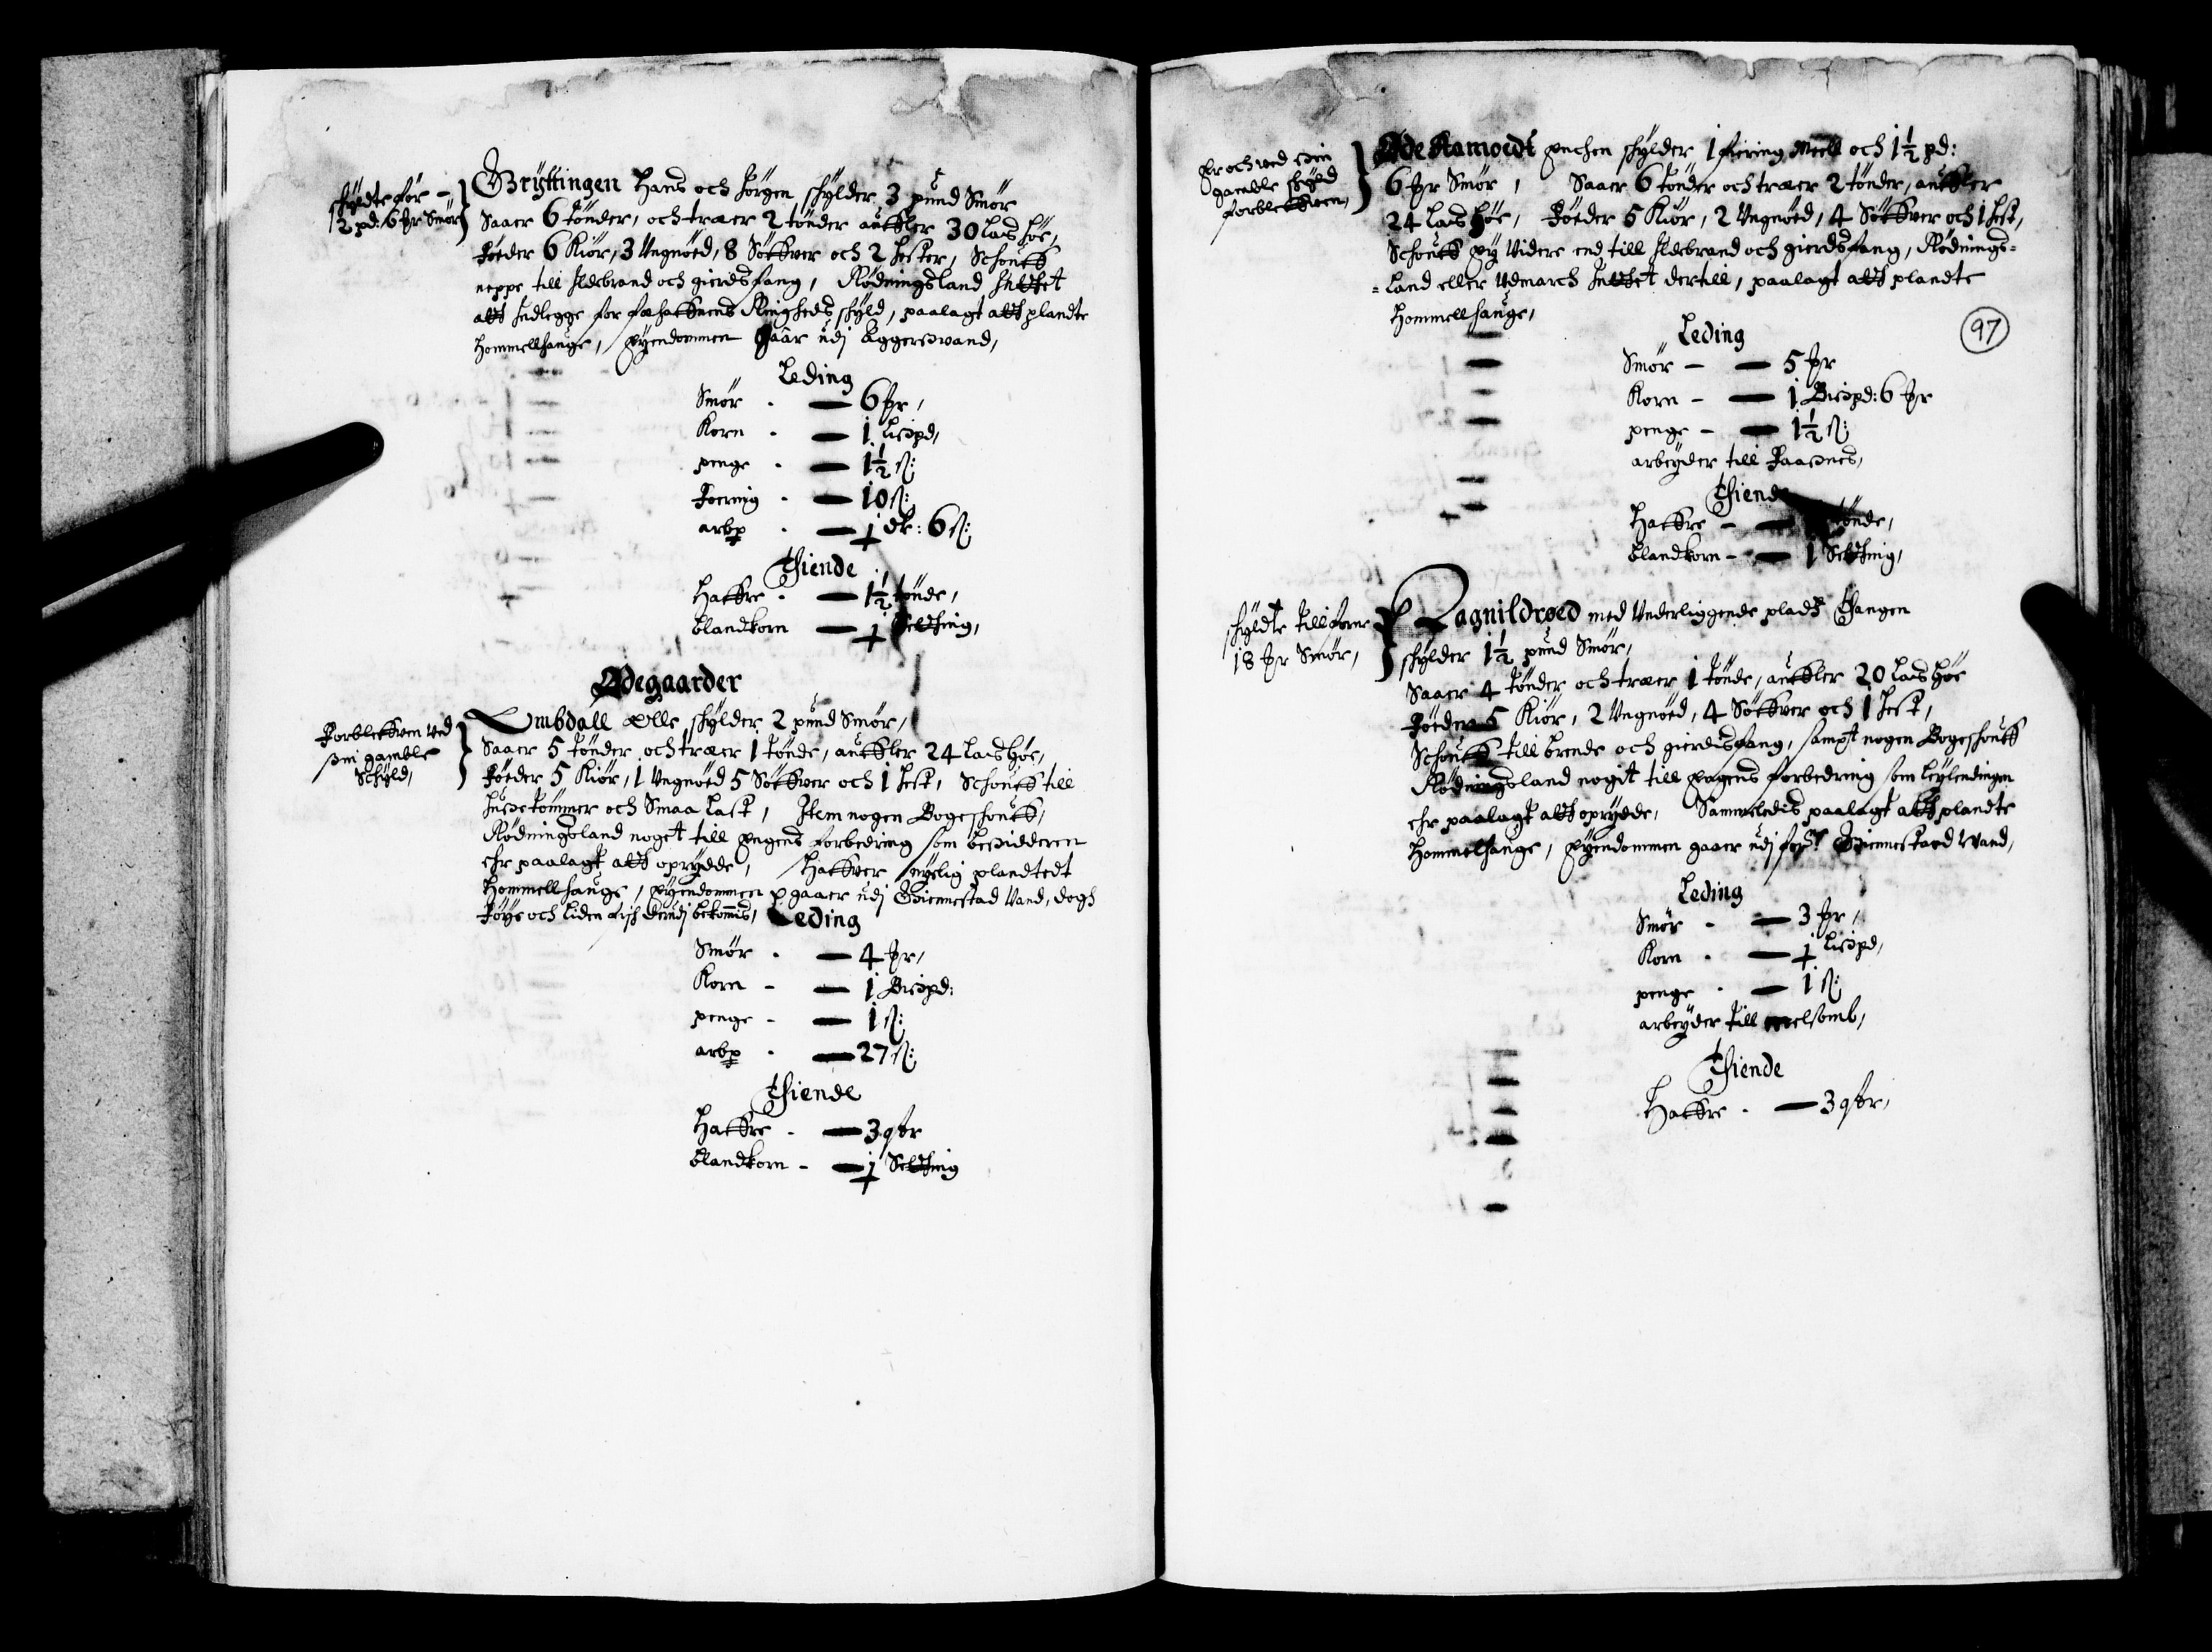 skyldte för -
2 pd: 6 Mr Smör
Gryttingen Hans och Jörgen, skylder 3 pund Smör
Saaer 6 tönder, och træer 2 tönder auffler 30 Las höe,
Föeder 6 Kiör, 3 Ungnöed, 8 Söffver och 2 hester, Schouff
neppe till Ildebrand och gierdsfang, Rödningsland Inttet
att Indlegge for fæhaffnens Ringheds skyld, paalagt att plandte
Hommellhauge, Eyendommen gaar udj Aggersvand,
Leding
Smör - 6 Mr,
Korn - 1 Lispd,
penge - 1½ s:
Foering - 10 s:
arbp - 1 dlr: 6 s:
Thiende
Haffre - 1½ tönde,
blandkorn - 1 Setting,
Ödegaarder
Forbleffven ved
sin gamble
Schyld,
Ombdall Olle skylder 2 pund Smör,
Saaer 5 tönder och træer 1 tönde, auffler 24 Las höe,
Föeder 5 Kiör, 1 Ungnöed 5 Söffver och 1 hest, Schouff till
husetömmer och Smaa Last, Item nogen Bogeschouff,
Rödningsland noget till Engens forbedring som besidderen
ehr paalagt att oprydde, Haffver nyelig plandtedt
Hommellhauge, Eyendommen gaaer udj Giennestad Vand, dogh
föye och liden fisk derudj bekommis,
Leding
Smör - 4 Mr,
Korn - 1 Bispd:
penge - 1 s:
arbp - 27 s:
Thiende
Haffre - 3 qtr
blandkorn - 1 Setting
Er och ved sin
gamble skyld
forbleffven,
Öde Aamoedt Enchen skylder 1 fiering Meell och 1½ pd:
6 Mr Smör, Saaer 6 tönder och træer 2 tönder, auffler
24 Las höe, Föeder 5 Kiör, 2 Ungnöed, 4 Söffver och 1 hest,
Schouff ey Videre end till Ildebrand och gierdsfang, Rödnings=
=Land eller Udmarch Inttet dertill, paalagt att plandte
Hommellhauge,
97
Leding
Smör - 5 Mr
Korn - 1 Bispd: 6 Mr
penge - 1½ s:
arbeyder till Faasnes,
Thiende
Haffre - tönde,
blandkorn - 1 Setting,
skyldte tillforne
18 Mr Smör,
Ragnildröed med Underliggende plads Thangen
skylder 1½ pund Smör,
Saaer 4 tönder och træer 1 tönde, auffler 20 Las höe
Föeder 5 Kiör, 2 Ungnöed, 4 Söffver och 1 hest,
Schouff till brende och gierdsfang, sampt nogen Bogeschouff
Rödningsland nogit till Engens forbedring som Leylendingen
ehr paalagt att oprydde, Sammeledis paalagt att plandte
Hommelhauge, Eyendommen gaaer udj forsr Giennestaed Vand,
Leding
Smör - 3 Mr,
Korn - 1 Lispd,
penge - 1 s:
arbeyder till melsomb,
Thiende
Haffre - 3 qtr,